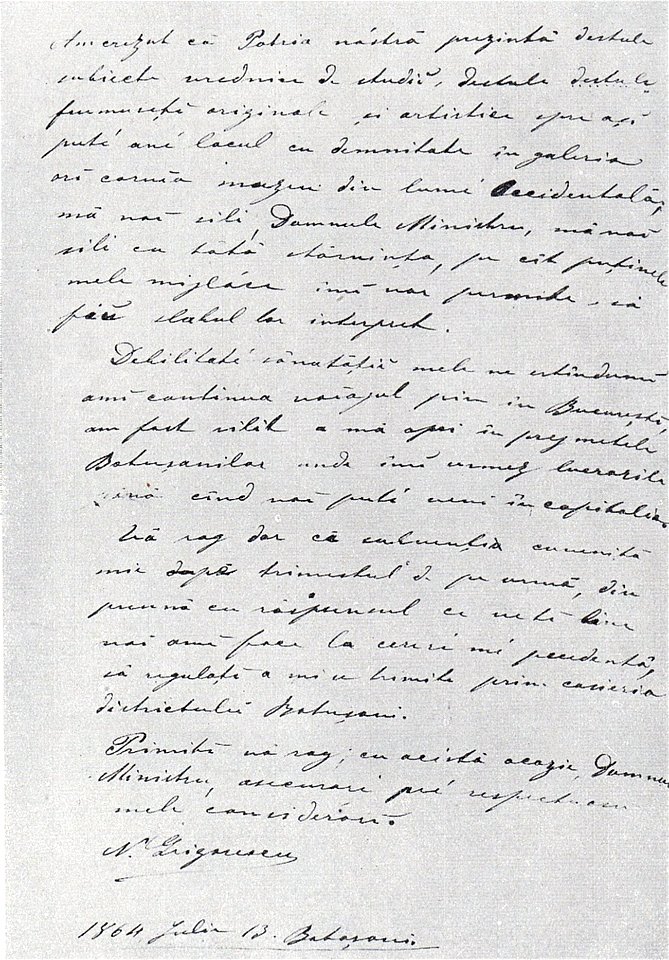 Am crezut că Patria nóstră prezintă destule
subiecte vrednice de studiŭ, destule destule
frumusețĭ originale și artistice spre așĭ
puté ave locul cu demnitate în galeria
orĭ căruĭa muzeu din lume Occidentală,
mă voĭ sili, Domnule Ministru, mă voĭ
sili cu tótă stăruința, pe cît puținele
mele mijlóce îmĭ vor permite, să
fiŭ slabul lor interpret.
Debilitate sănatățiĭ mele ne ertîndumĭ
amĭ continua voiagul pin in Bucureștĭ,
am fost silit a mă opri în prejmetele
Botușanilor unde îmĭ urmez lucrarile
pină cînd voĭ puté veni în capitalia.
Vă rog dar ca subvenția cuvenită
mie după trimestrul de pe urmă, din
preună cu răspunsul ce veți bine
voi amĭ face la cerere mé precedentă,
să regulațĭ a mi se trimite prin casieria
districtuluĭ Botușani.
Primițĭ vă rog, cu acéstă ocazie, Domnule
Ministru, asecurare pré respectuoase
mele considerăriĭ.
N. Grigorescu
1864 Julie 13. Botoșani.